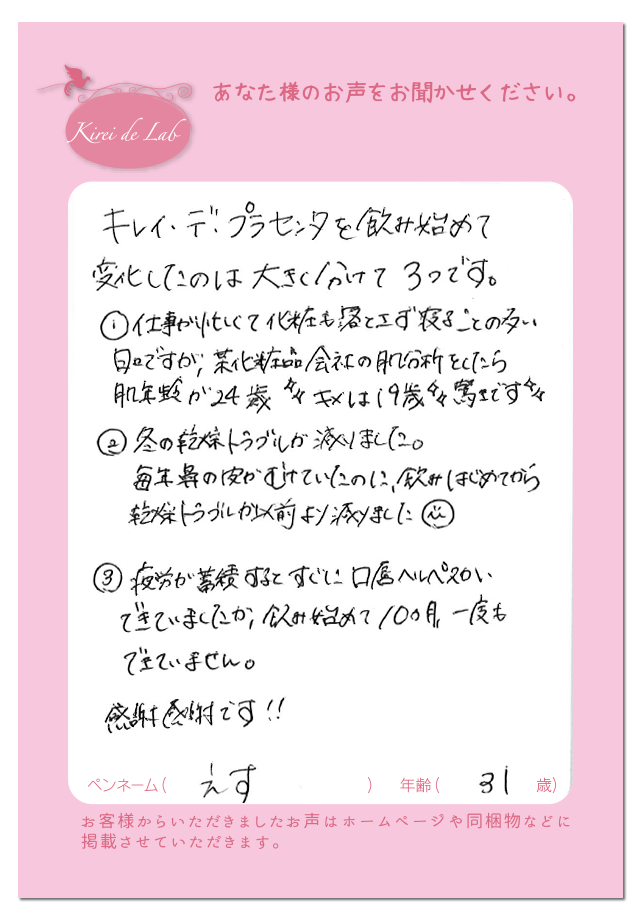 あなた様のお声をお聞かせください。
Kirei de Lab
キレイ・デ・プラセンタを飲み始めて
変化したのは大きく分けて3つです。
①仕事が忙しくて化粧も落とさず寝ることの多い
日々ですが、某化粧品会社の肌分析をしたら
肌年齢が24歳 キメは19歳 驚きです
②冬の乾燥トラブルが減りました。
毎年鼻の皮がむけていたのに、飲みはじめてから
乾燥トラブルが以前より減りました
③疲労が蓄積するとすぐに口唇ヘルペスが
できていましたが、飲み始めて10ヵ月、一度も
できていません。
感謝感謝です!!
ペンネーム( えす ) 年齢( 31 歳)
お客様からいただきましたお声はホームページや同梱物などに
掲載させていただきます。